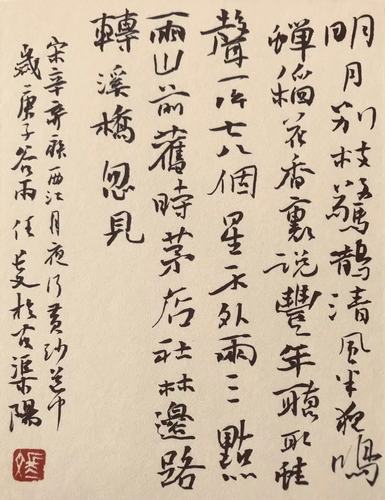 明月别枝驚鵲清風半夜鳴
蟬稻花香裏說豐年聽取蛙
聲一片七八個星天外兩三點
雨山前舊時茅店社林邊路
轉溪橋忽見
宋辛棄疾西江月夜行黃沙道中
歲庚子谷雨於古渠陽